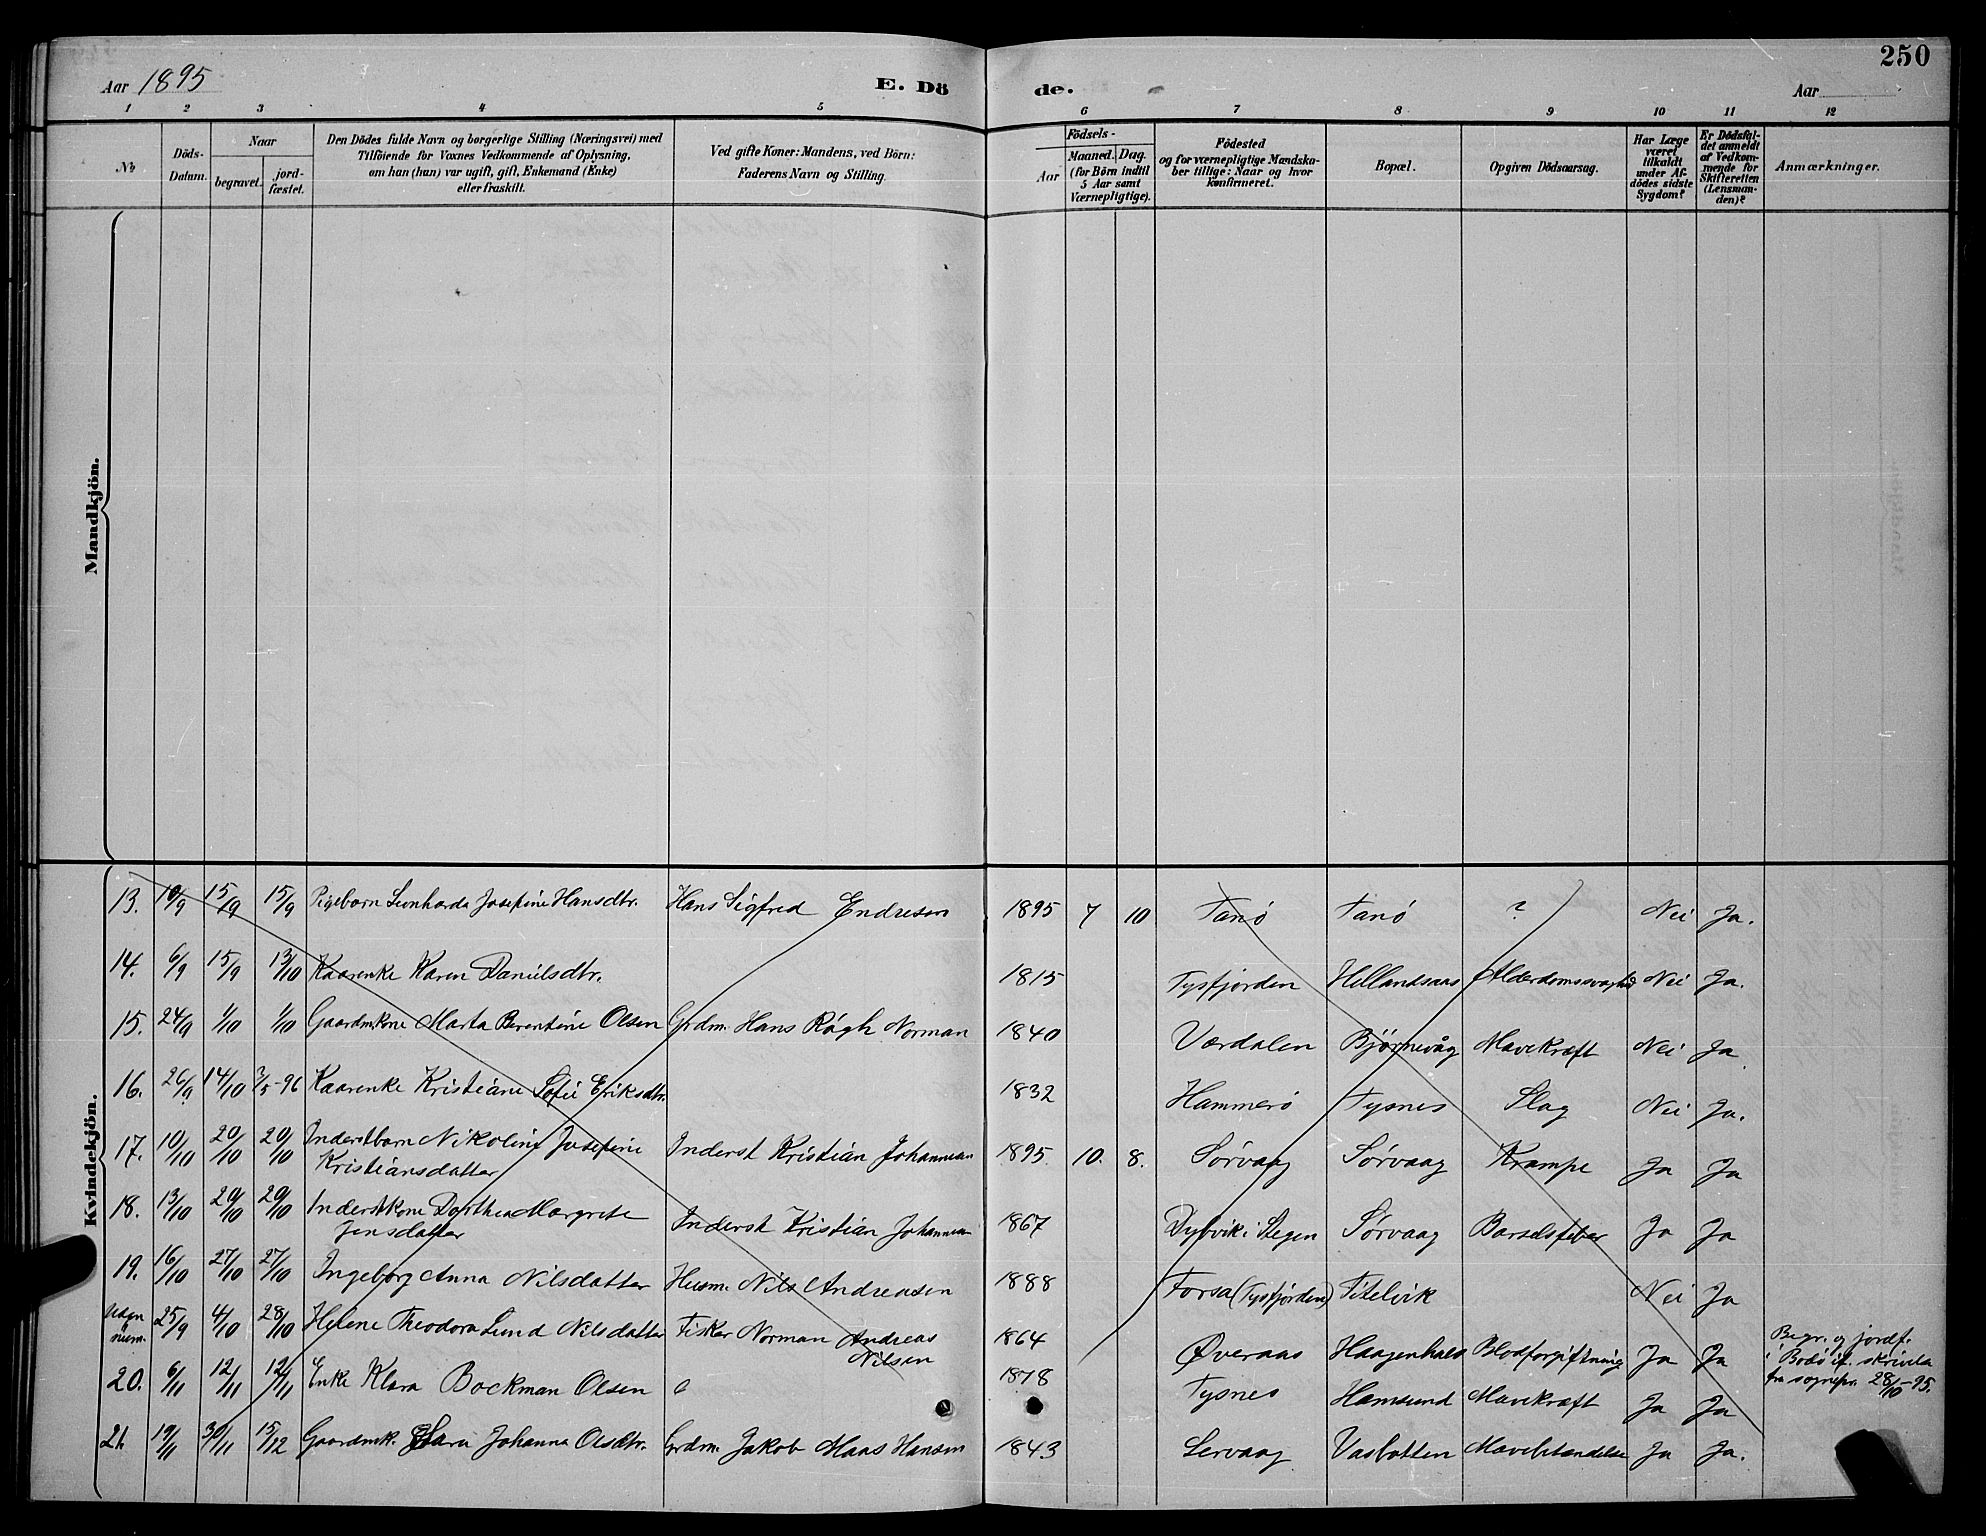 250
Aar 1895 E. Dö de. Aar
1 2 3 4 5 6 7 8 9 10 11 12
No
Döds-Datum.
Naar
begravet.
jord-fæstet.
Den Dödes fulde Navn og borgerlige Stilling (Næringsvei) med
Tilföiende for Voxnes Vedkommende af Oplysning,
om hun (han) var ugift, gift, Enkemand (Enke)
eller fraskilt.
Ved gifte Koner: Mandens, ved Börn:
Faderens Navn og Stilling.
Födsels-
Aar
Maaned. Dag.
(for Börn indtil
5 Aar samt
Værnepligtige).
Födested
og for værnepligtige Mandska-
ber tillige: Naar og hvor
konfirmeret.
Bopæl.
Opgiven Dödsaarsag.
Har Læge
været
tilkaldt
under Af-
dödes sidste
Sygdom?
Er Dödsfal-
det anmeldt
af Vedkom-
mende for
Skifteretten
(Lensman-
den)?
Anmærkninger.
Mandkjön.
Kvindekjön.
13. 10/9 15/9 15/9 Pigebarn Leonharda Josefine Hansdtr. Hans Sigfred Endresen 1895 7 10 Tanø Tanø ? Nei Ja.
14. 6/9 15/9 13/10 Kaarenke Karen Danielsdtr. 1815 Tysfjorden Hellandsaas Alderdomssvaghed Nei Ja.
15. 24/9 1/10 1/10 Gaardmkone Marta Berentine Olsen Grdm. Hans Røgh Norman 1840 Værdalen Bjørnevåg Mavekræft Nei Ja
16. 26/9 14/10 3/5-96 Kaarenke Kristiane Sofie Eriksdtr. 1832 Hammerø Tysnes Slag Nei Ja.
17. 10/10 20/10 20/10 Inderstbarn Nikoline Josefine Kristiansdatter Inderst Kristian Johannesen 1895 10. 8. Sørvaag Sørvaag Krampe Ja Ja
18. 13/10 20/10 20/10 Inderstkone Dorthea Margrete Jensdatter Inderst Kristian Johannesen 1867 Dybvik i Stegen Sørvaag Barselsfeber Ja Ja
19. 16/10 27/10 27/10 Ingeborg Anna Nilsdatter Husm. Nils Andreasen 1888 Forsa (Tysfjorden) Fitelvik Nei Ja
Uden num. 25/9 4/10 28/10 Helene Theodora Lund Nilsdatter Fisker Norman Andreas Nilsen 1864 Øveraas Haagenhals Blodforgiftning Ja Ja Begr. og jordf. i Bodø if. skrivelse fra sognepr. 28/10-95.
20. 6/11 12/11 12/11 Enke Klara Bockman Olsen 1878 Tysnes Hamsund Mavekræft Ja Ja
21. 19/11 30/11 15/12 Gaardmk. Sara Johanna Olsdtr. Grdm. Jakob Maas Hansen 1843 Servaag Vasbotten Mavebetændelse Ja Ja.